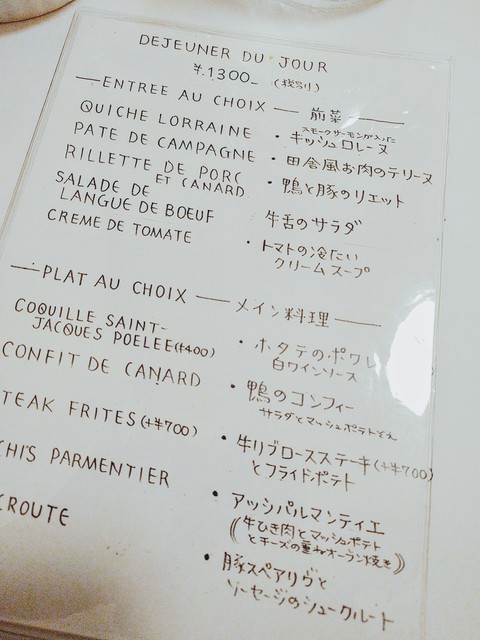 DEJEUNER DU JOUR
¥.1300- (税別)
ENTREE AU CHOIX 前菜
QUICHE LORRAINE
・スモークサーモンが入った
キッシュロレーヌ
PATE DE CAMPAGNE
・田舎風お肉のテリーヌ
RILLETTE DE PORC
ET CANARD
・鴨と豚のリエット
SALADE DE
LANGUE DE BOEUF
牛舌のサラダ
CREME DE TOMATE
・トマトの冷たい
クリームスープ
PLAT AU CHOIX メイン料理
COQUILLE SAINT-
JACQUES POELEE(+¥400)
・ホタテのポワレ
白ワインソース
CONFIT DE CANARD
・鴨のコンフィー
サラダとマッシュポテトそえ
TEAK FRITES(+¥700)
・牛リブロースステーキ(+¥700)
とフライドポテト
CHI'S PARMENTIER
・アッシパルマンティエ
(牛ひき肉とマッシュポテト
とチーズの重ねオーブン焼き)
CROUTE
・豚スペアリヴと
ソーセージのシュークルート